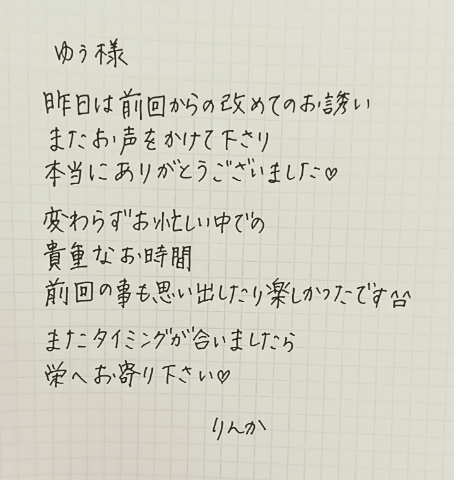 ゆう様
昨日は前回からの改めてのお誘い
またお声をかけて下さり
本当にありがとうございました♡
変わらずお忙しい中での
貴重なお時間
前回の事も思い出したり楽しかったです^^
またタイミングが合いましたら
栄へお寄り下さい♡
りんか